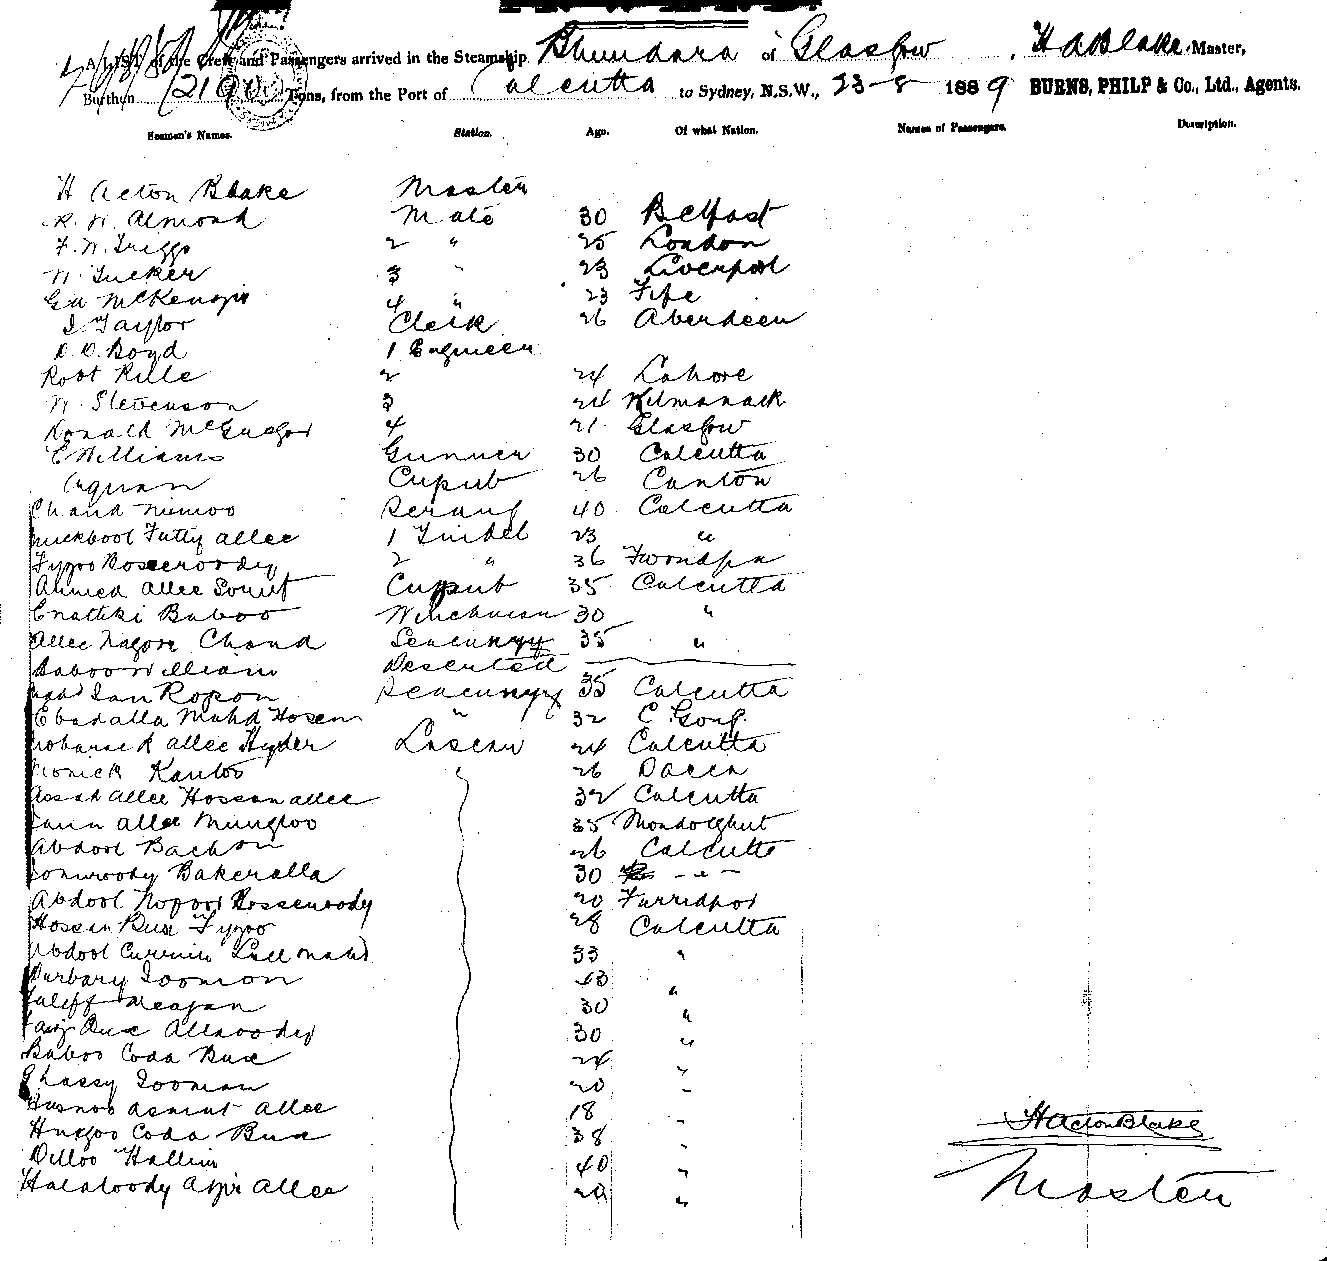 A LIST of the Crew and Passengers arrived in the Steamship Bhundara of Glasgow, H A Blake Master,
Burthen 2190 Tons, from the Port of Calcutta to Sydney, N.S.W., 23-8 1889 BURNS, PHILP & Co., Ltd., Agents.
Seamen's Names. Station. Age. Of what Nation. Names of Passengers. Description.
H Acton Blake Master
R. W. Almond Mate 30 Belfast
F. W. Triggs 2 " 25 London
W. Tucker 3 " 23 Liverpool
Geo McKenzie 4 " 23 Fife
J. Taylor Clerk 26 Aberdeen
D. D. Boyd 1 Engineer
Robt Kille 2 24 Lahore
W. Stevenson 3 24 Kilmanack
Ronald McGregor 4 21 Glasgow
E Williams Gunner 30 Calcutta
Aguan 26 Canton
Chand Nimoo Serang 40 Calcutta
Futty Allee 1 Tindel 23 "
Fyzoo Bosseroody 2 " 36
Ahmed Allee 35 Calcutta
Baboo Winchman 30 "
Allee Nagore Chand Seacunny 35 "
Baboo William Deserted
Jan Ropon Seacunny 35 Calcutta
Ebadalla Mahd Hosen " 32
Mobarack Allee Hyder Lascar 24 Calcutta
Monick Kantoo 26 Dacca
Assad Allee Hossan allee 32 Calcutta
Allee Mungloo 35
Abdool Bachon 26 Calcutta
Bakeralla 30 - " -
Abdool Bossenroody 20 Furridpor
Hossen Bux Fyzoo 28 Calcutta
Abdool Currim Lall mahd 33 "
Durbary Jooman 43 "
Meajan 30 "
Bux Allaoody 30 "
Baboo Coda Bux 24 "
Ghassy Jooman 20 "
Asmut Allee 18 "
Coda Bux 38 "
Dilloo Hallim 40 "
Allee "
H Acton Blake
Master